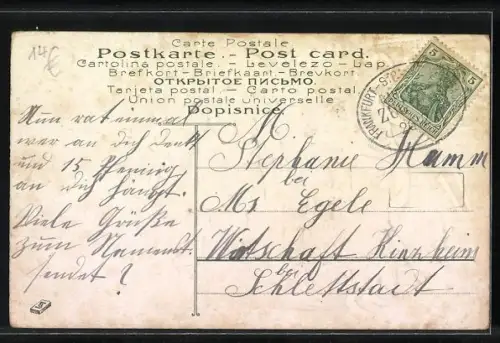 14€
Carte Postale
Postkarte.- Post card.
Cartolina postale. - Levelezo - Lap.
Brefkort - Briefkaart - Brevkort
ОТКРЫТОЕ ПИСЬМО.
Tarjeta postal. - Carto postal.
Union postale universelle
Dopisnice
5 5
FRANKFURT - S
ZU
Nun rat einmal
wer an dich denkt
und 15 Pfennig
an dich hängt.
Viele Grüße
zum Namenst.
sendet ?
M.
Stephanie Hamm
bei
Mr Egele
Wirtschaft Kinzheim
bei
Schlettstadt